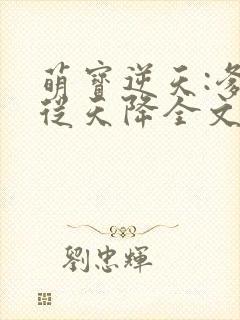 萌寶逆天:爹
從天降全文
劉忠輝